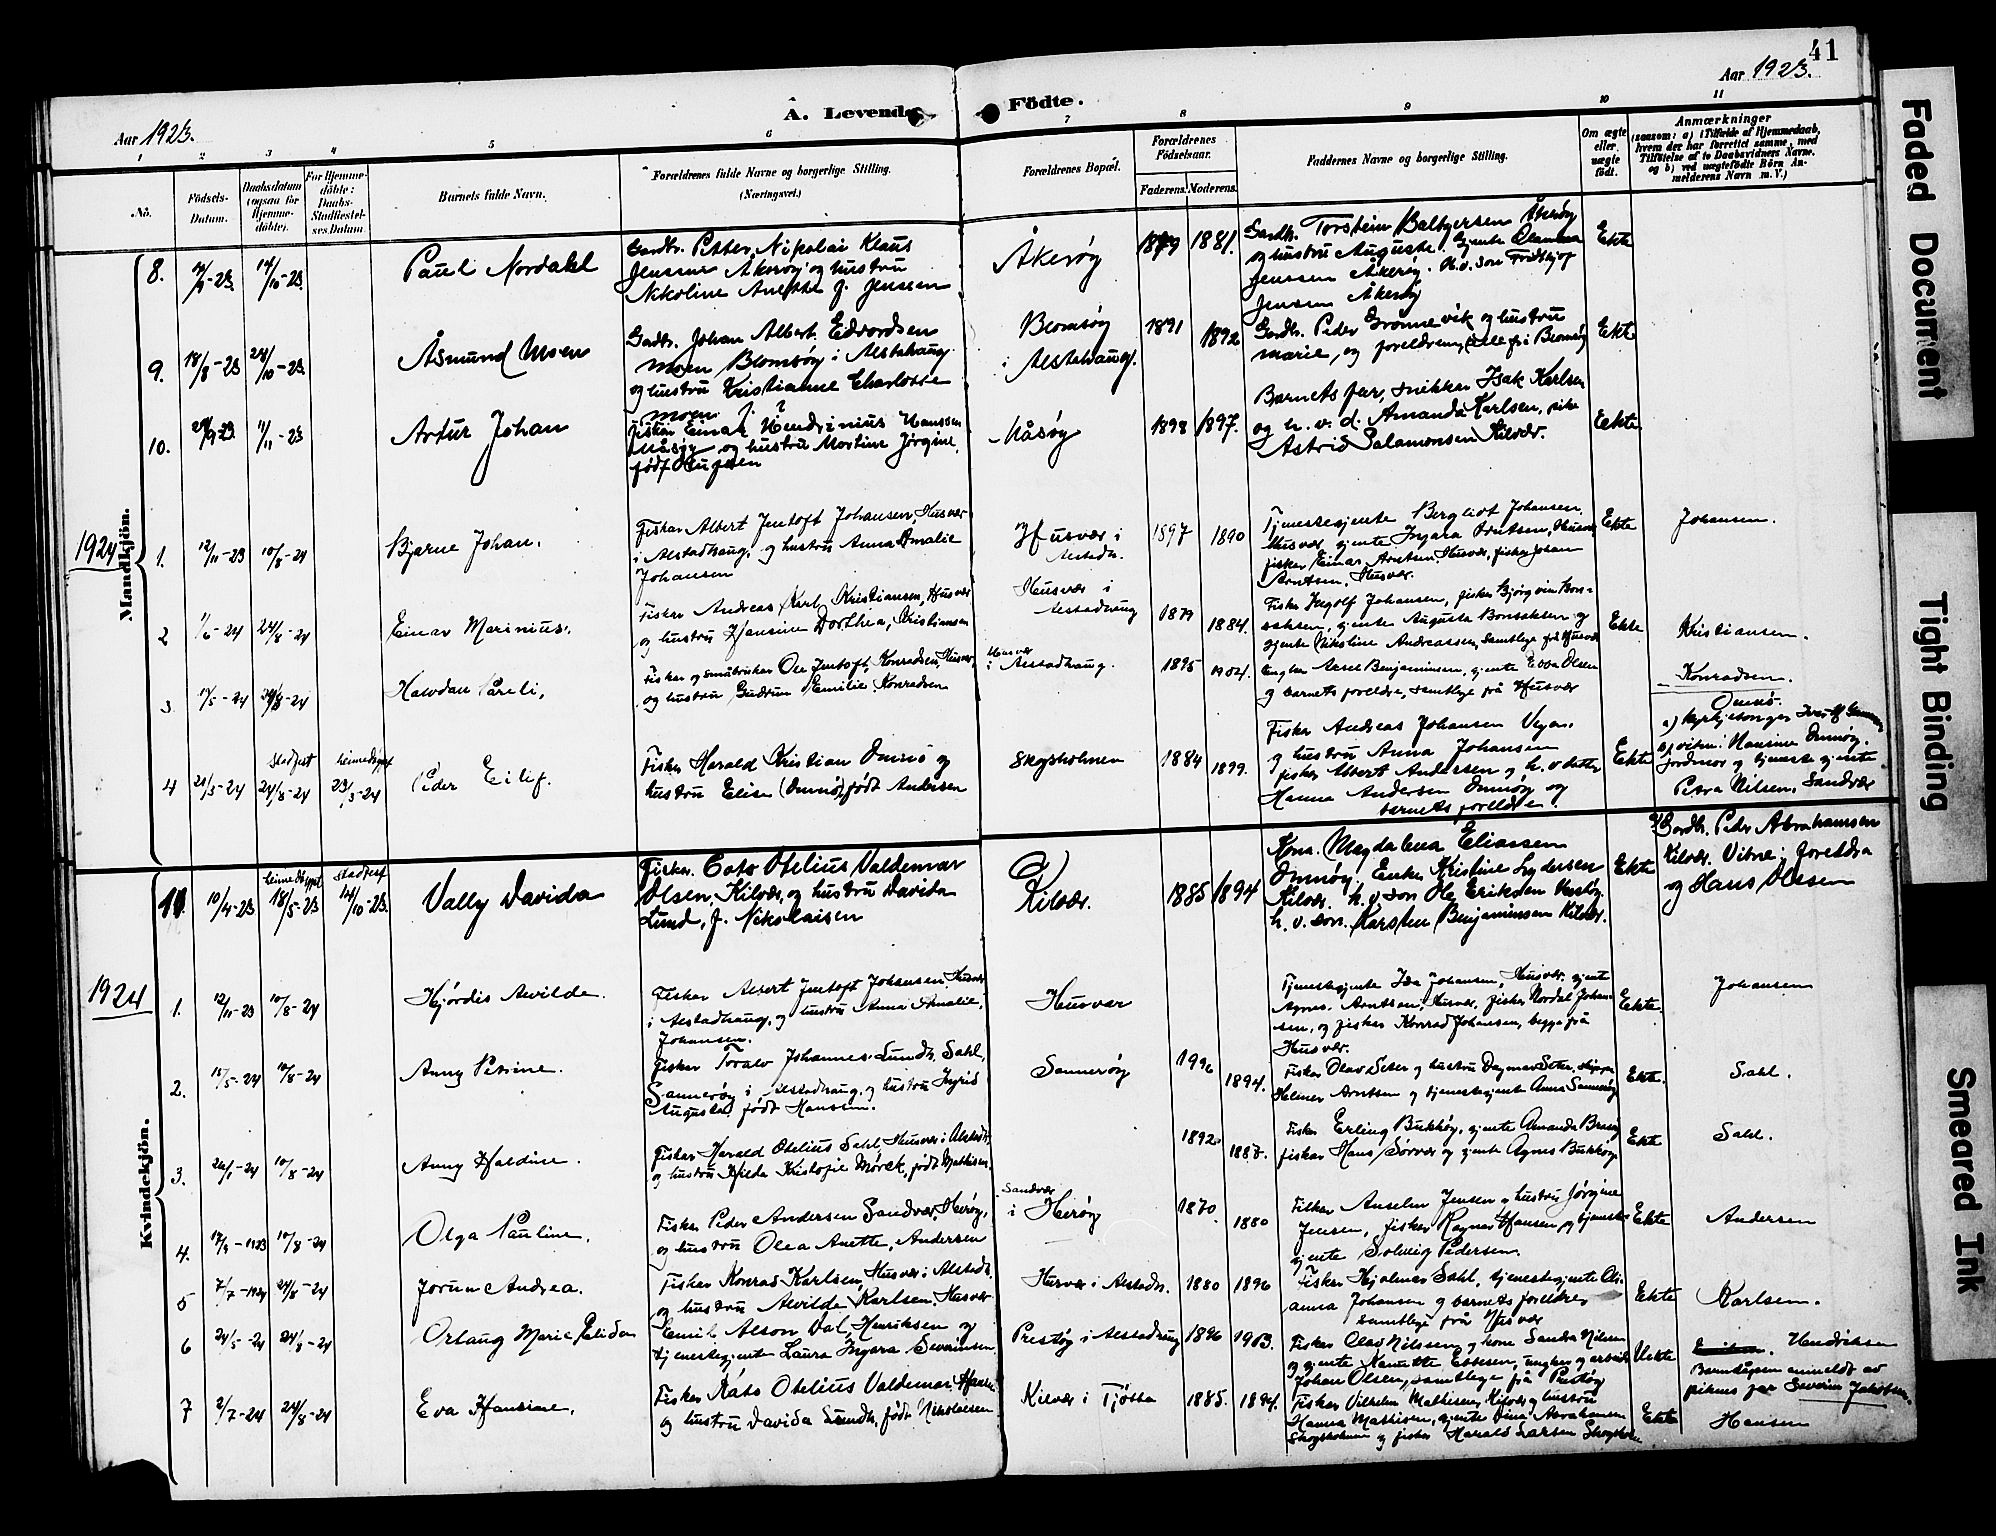 41
Aar 1923.
Aar 1923.
A. Levende
Födte.
1 2 3 4 5 6 7 8 9 10 11
No.
Födsels-
Datum.
Daabsdatum
(ogsaa for
Hjemme-
döbte).
For Hjemme-
döbte:
Daabs-
Stadfæstel-
ses Datum.
Barnets fulde Navn.
Forældrenes fulde Navne og borgerlige Stilling.
(Næringsvei.)
Forældrenes Bopæl.
Forældrenes
Födselsaar.
Faderens. Moderens.
Faddernes Navne og borgerlige Stilling.
Om ægte
eller
uægte
födt.
Anmærkninger
(saasom: a) i Tilfælde af Hjemmedaab,
hvem der har forrettet samme, med
Tilföielse af to Daabsvidners Navne,
og b) ved uægtefödte Börn An-
melderens Navn m. V.)
Mandkjön.
8.
14/10-23
Paul Nordahl
Gardbr. Petter Nikolai Klaus
Jenssen Åkerøy og hustru
Nikoline Anette f. Jensen
Åkerøy
1879 1881.
Gardbr. Torstein Baltzersen Åkerøy
og hustru Auguste, gjente
Jenssen Åkerøy. H.v. son Fridthjof
Jensen Åkerøy
Ekte
9. 18/8-23 24/10-23
Åsmund Moen
Gardbr. Johan Albert Edvardsen
Moen Blomsøy i Alstahaug
og hustru Kristianne Charlotte
Moen
Blomsøy
i Alstahaug.
1891 1892
Gardb. Peder Grønnevik og hustru
Marie, og foreldrene, alle fra Blomsøy
Ekte
10. 11/11-23
Artur Johan
Fiskar Einar Hendrinius Hanssen
Måsøy og hustru Martine Jørgine,
født
Måsøy
1898 1897.
Barnets far, snikkar Isak Karlsen
og h. v. d. Amanda Karlsen, pike
Astrid Salamonsen Kilvær.
Ekte
1924
1. 12/11-23 10/8-24
Bjarne Johan.
Fisker Albert Jentoft Johansen, Husvær
i Alstadhaug, og hustru Anna Amalie
Johansen
Husvær i
Alstadh.
1897 1890
Tjenestegjente Bergliot Johansen,
Husvær, gjente Ingara Arntsen, Husvær
fisker Einar Arntsen, Husvær, fisker Johan
Arntsen, Husvær.
Ekte
Johansen.
2 1/6-24 24/8-24
Einar Marinius.
Fisker Andreas Karl Kristiansen, Husvær
og hustru Hansine Dorthea, Kristiansen
Husvær i
Alstadhaug
1879 1884.
Fisker Ingolf Johansen, fisker Bjørgvin Bons-
saksen, gjente Augusta Bonsaksen og
gjente Nikoline Andreassen, samtlige på Husvær
Ekte
Kristiansen.
3. 17/5-24 24/8-24
Halvdan Pareli,
Fisker og småbruker Ole Jentoft Konradsen, Husvær,
og hustru Gudrun Emilie Konradsen
Husvær
i Alstadhaug.
1895 1904.
Ungkar Arne Benjaminsen, gjente Edda Olsen
og barnets foreldre, samtlige på Husvær
Konradsen.
4 21/3-24
stadfest
24/8-24
heimedøypt
23/3-24
Peder Eilif.
Fisker Harald Kristian Omnø og
hustru Elise (Omnø) født Andersen
Skogsholmen
1884 1899.
Fisker Andreas Johansen Vega.
og hustru Anna Johansen
fisker Albert Andersen og h. v datter
Hanna Andersen Omnøy og
barnets foreldre.
Ekte
Omnø.
a) kyrkjesongar
vitn: Hansine Omnøy,
jordmor og tjeneste gjente
Petra Nilsen, Sandvær
Kvindekjön.
11. 10/4-23
heimedøypt
18/5-23
stadfest
14/10-23.
Vally Davida
Fiskar Cato Otelius Valdemar
Olsen, Kilvær, og hustru Davida
Lund, f. Nikolaisen
Kilvær.
1885 1894
Kona Magdalena Eliassen
Omnøy, Enke Kristine Lydersen
Kilvær. h. v. son Ole Eriksen
h. v. son. Karsten Benjaminsen Kilvær.
Ekte
Gardb. Peder Abrahamsen
Kilvær. Vitne: foreldra
og Hans Olsen
1924
1. 12/11-23 10/8-24
Hjördis Alvilde.
Fisker Albert Jentoft Johansen, Husvær
i Alstadhaug, og hustru Anna Amalie,
Johansen.
Husvær
Tjenestegjente Ida Johansen, Husvær, gjente
Agnes Arntsen, Husvær, fisker Nordal Johan
sen, og fisker Konrad Johansen, begge på
Husvær.
Ekte.
Johansen
2. 15/5-24 10/8-24
Anny Petrine.
Fisker Toralv Johannes Lundh. Sahl,
Sannerøy i Alstadhaug, og hustru Ingrid
Augusta, født Hansen.
Sannerøy
1996 1894.
Fisker Olav Seter og hustru Dagmar Seter, skipper
Helmer Arntsen og tjenestegjente Anna Sannerøy
Ekte.
Sahl.
3. 10/8-24
Anny Haldine.
Fisker Harald Otelius Sahl, Husvær i Alstadh.
og hustru Hilda Kristofie Mørck, født Mathisen.
1892 1887.
Fisker Erling Bukkøy, gjente Amanda
fisker Hans Sørvær og gjente Agnes Bukkøy.
Ekte
Sahl.
4. 17/9-1923 10/8-24
Olga Pauline.
Fisker Peder Andersen Sandvær, Herøy,
og hustru Olea Anette, Andersen
Sandvær
i Herøy
1870 1880
Fisker Anselm Jensen og hustru Jørgine
Jensen, fisker Ragnar Hansen og tjeneste
gjente Solveig Pedersen.
Ekte
Andersen
5 7/7-1924 24/8-24
Jorunn Andrea.
Fisker Konrad Karlsen, Husvær i Alstadh.
og hustru Alvilde Karlsen. Husvær
Husvær i Alstadh.
1880 1896
Fisker Hjalmar Sahl, tjenestegjente Oli-
anna Johansen og barnets foreldre
samtlige på Husvær
Ekte
Karlsen.
6 24/5-24 24/8-24
Orlaug Marie
Emil Alson Dal, Henriksen og
tjenestegjente Laura Ingara Severinsen
Prestøy i Alstadhaug
1896 1903.
Fisker Olav Nilssen og kone Sandra Nilsen
og gjente Nanette Ebbesen, ungkar og arbeider
Johan Olsen, samtlige på Prestøy
Uekte
Hendriksen
Barndåpen anmeldt av
pikens far Severin Jakobsen.
7 2/7-24 24/8-24
Eva Hansine.
Fisker Kato Otelius Valdemar Hansen
og hustru Davida Lundh, født Nikolaisen
Kilvær i Tjøtta
1885. 1894.
Fisker Vilhelm Mathisen, Kilvær og hustru
Hanna Mathisen, gjente Dina Abrahamsen
Skogsholmen og fisker Harald Larsen Skogsholm
Ekte
Hansen
Faded Document
Tight Binding
Smeared Ink